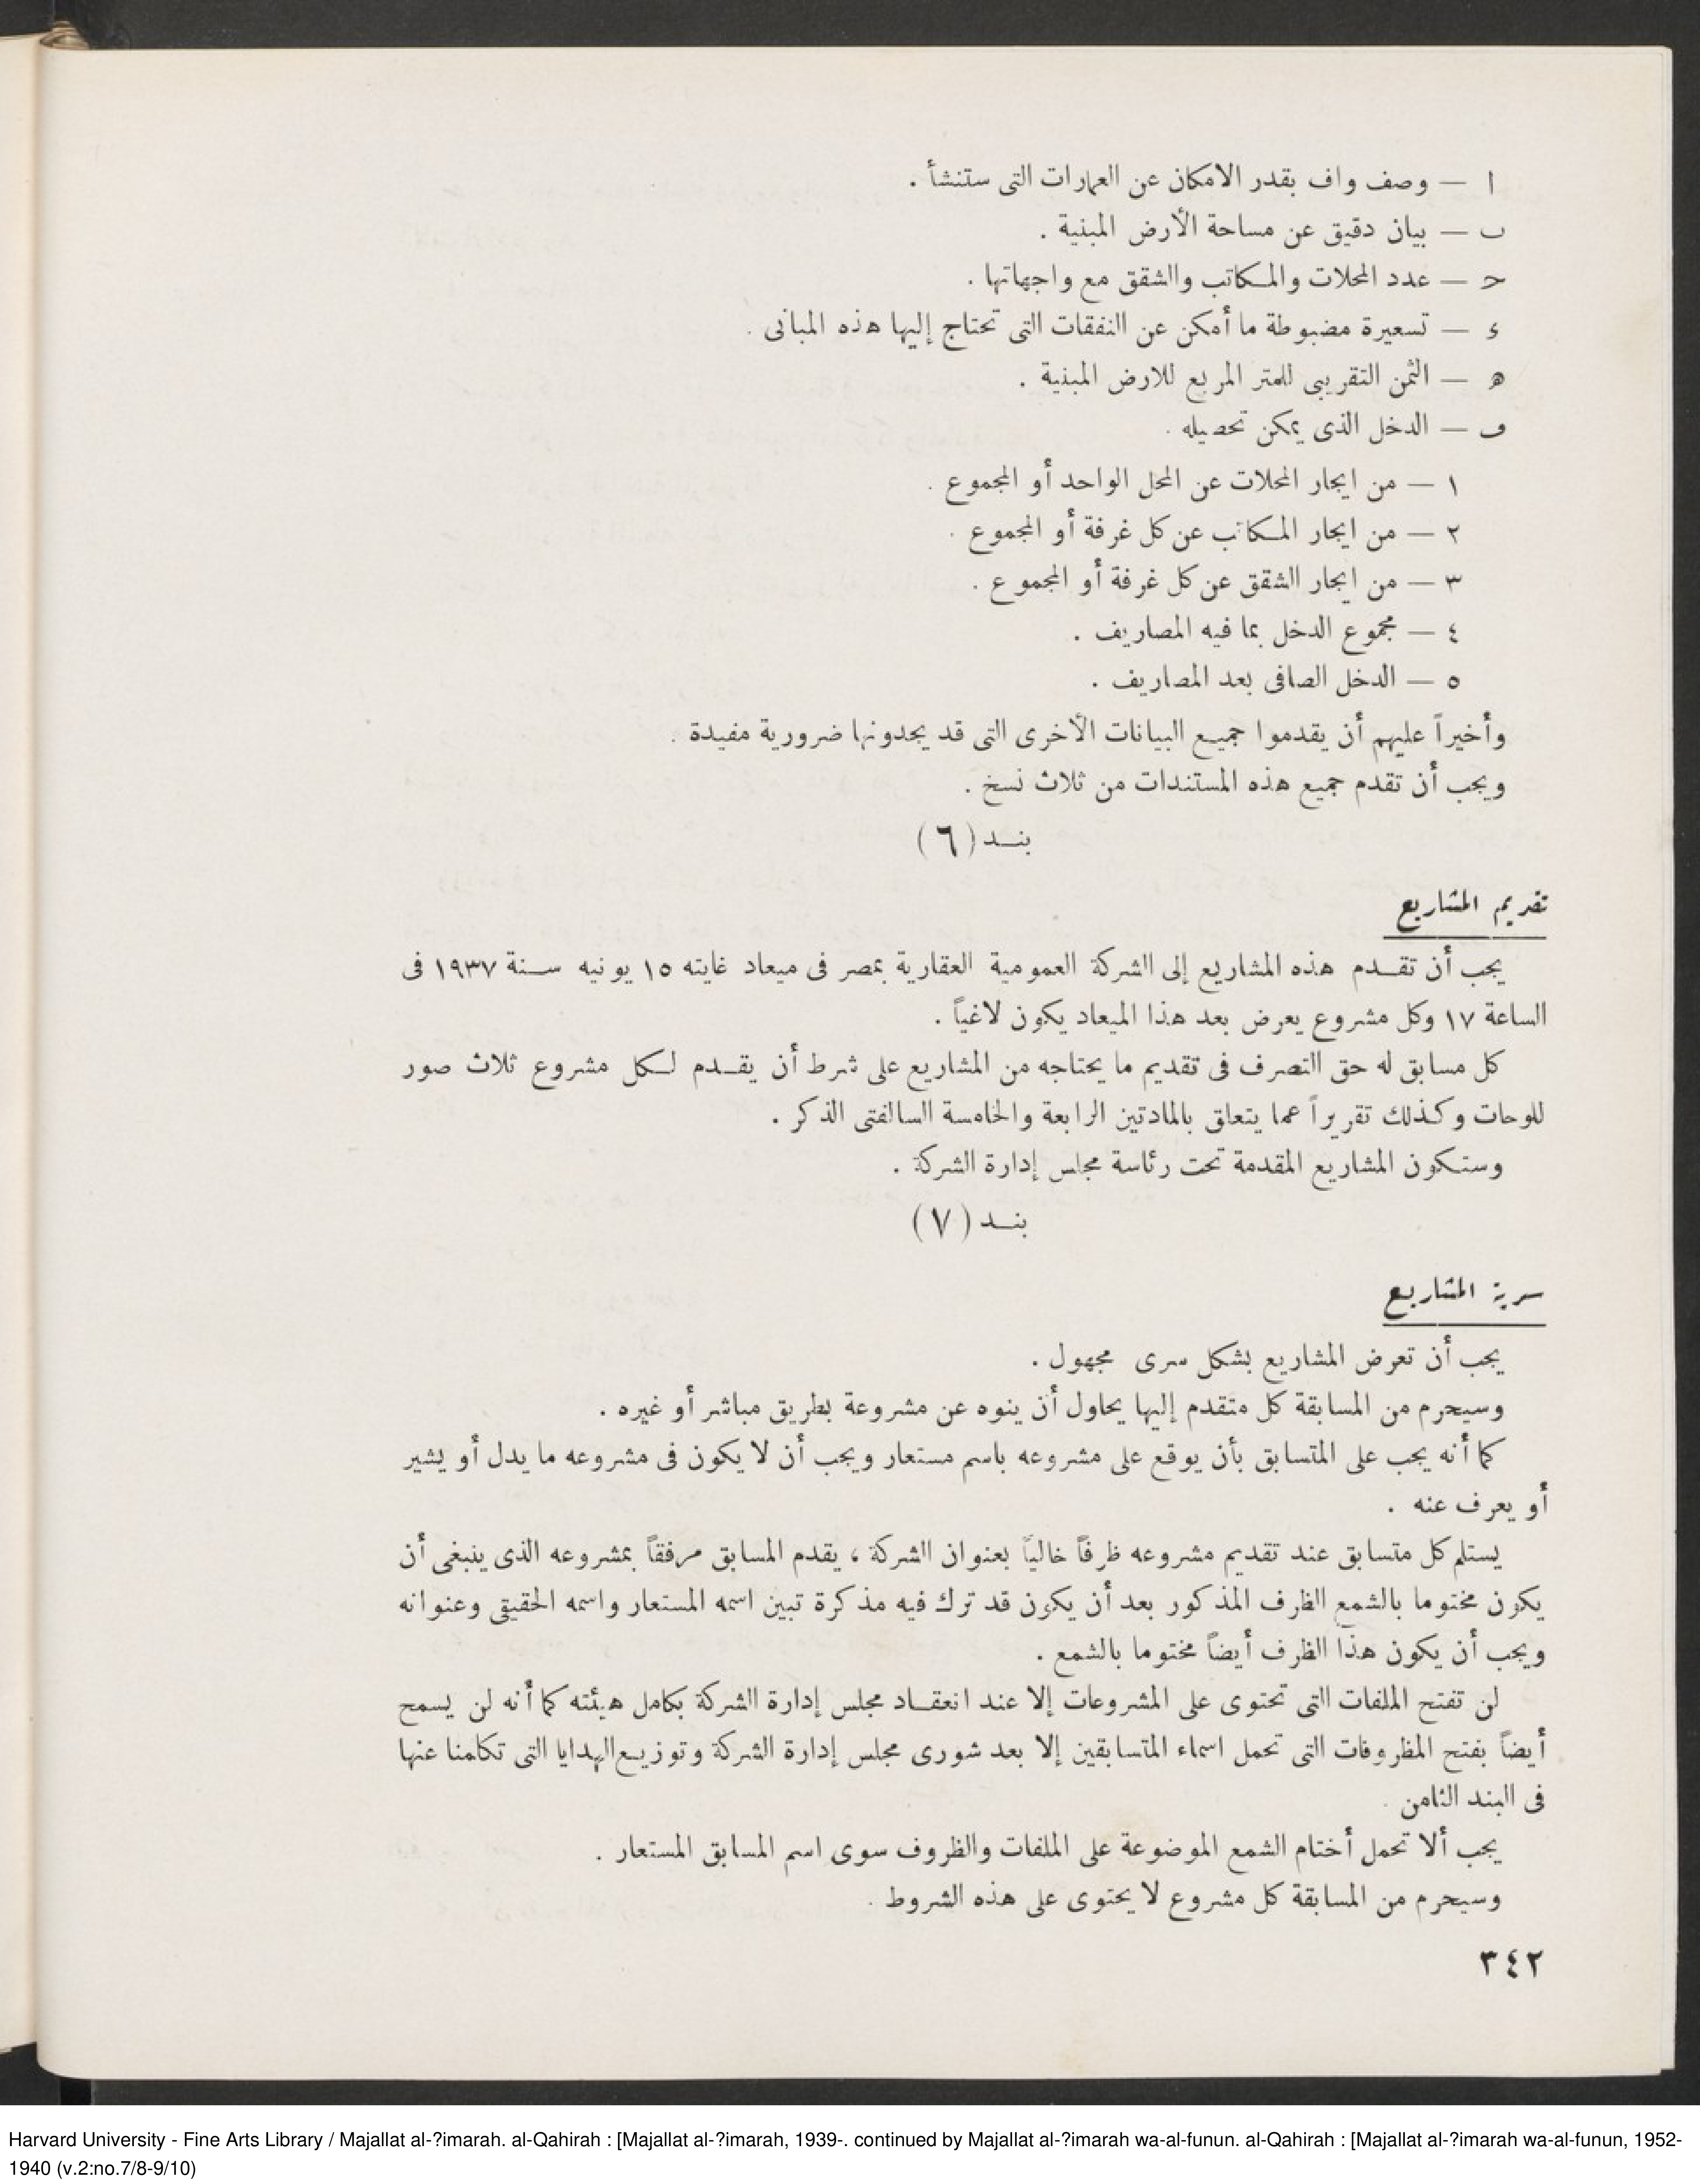 ا — وصف واف بقدر الامكان عن العمارات التى ستنشأ .
ب — بيان دقيق عن مساحة الأرض المبنية .
ح — عدد المحلات والمكاتب والشقق مع واجهاتها .
ء — تسعيرة مضبوطة ما أمكن عن النفقات التى تحتاج إليها هذه المبانى .
ه — الثمن التقريبى للمتر المربع للارض المبنية .
و — الدخل الذى يمكن تحصيله .
١ — من ايجار المحلات عن المحل الواحد أو المجموع .
٢ — من ايجار المكاتب عن كل غرفة أو المجموع .
٣ — من ايجار الشقق عن كل غرفة أو المجموع .
٤ — مجموع الدخل بما فيه المصاريف .
٥ — الدخل الصافى بعد المصاريف .
وأخيراً عليهم أن يقدموا جميع البيانات الأخرى التى قد يجدونها ضرورية مفيدة .
ويجب أن تقدم جميع هذه المستندات من ثلاث نسخ .
بند (٦)
تقديم المشاريع
يجب أن تقدم هذه المشاريع إلى الشركة العمومية العقارية بمصر فى ميعاد غايته ١٥ يونيه سنة ١٩٣٧ فى
الساعة ١٧ وكل مشروع يعرض بعد هذا الميعاد يكون لاغياً .
كل مسابق له حق التصرف فى تقديم ما يحتاجه من المشاريع على شرط أن يقدم لكل مشروع ثلاث صور
للوحات وكذلك تقريراً عما يتعلق بالمادتين الرابعة والخامسة السالفتى الذكر .
وستكون المشاريع المقدمة تحت رئاسة مجلس إدارة الشركة .
بند (٧)
سرية المشاريع
يجب أن تعرض المشاريع بشكل سرى مجهول .
وسيحرم من المسابقة كل متقدم إليها يحاول أن ينوه عن مشروعة بطريق مباشر أو غيره .
كما أنه يجب على المتسابق بأن يوقع على مشروعه باسم مستعار ويجب أن لا يكون فى مشروعه ما يدل أو يشير
أو يعرف عنه .
يستلم كل متسابق عند تقديم مشروعه ظرفاً خالياً بعنوان الشركة ، يقدم المسابق مرفقاً بمشروعه الذى ينبغى أن
يكون مختوما بالشمع الظرف المذكور بعد أن يكون قد ترك فيه مذكرة تبين اسمه المستعار واسمه الحقيقى وعنوانه
ويجب أن يكون هذا الظرف أيضاً مختوما بالشمع .
لن تفتح الملفات التى تحتوى على المشروعات إلا عند انعقاد مجلس إدارة الشركة بكامل هيئته كما أنه لن يسمح
أيضاً بفتح المظروفات التى تحمل اسماء المتسابقين إلا بعد شورى مجلس إدارة الشركة وتوزيع الهدايا التى تكلمنا عنها
فى البند الثامن .
يجب ألا تحمل أختام الشمع الموضوعة على الملفات والظروف سوى اسم المسابق المستعار .
وسيحرم من المسابقة كل مشروع لا يحتوى على هذه الشروط .
٣٤٢
Harvard University - Fine Arts Library / Majallat al-?imarah. al-Qahirah : [Majallat al-?imarah, 1939-. continued by Majallat al-?imarah wa-al-funun. al-Qahirah : [Majallat al-?imarah wa-al-funun, 1952-
1940 (v.2:no.7/8-9/10)